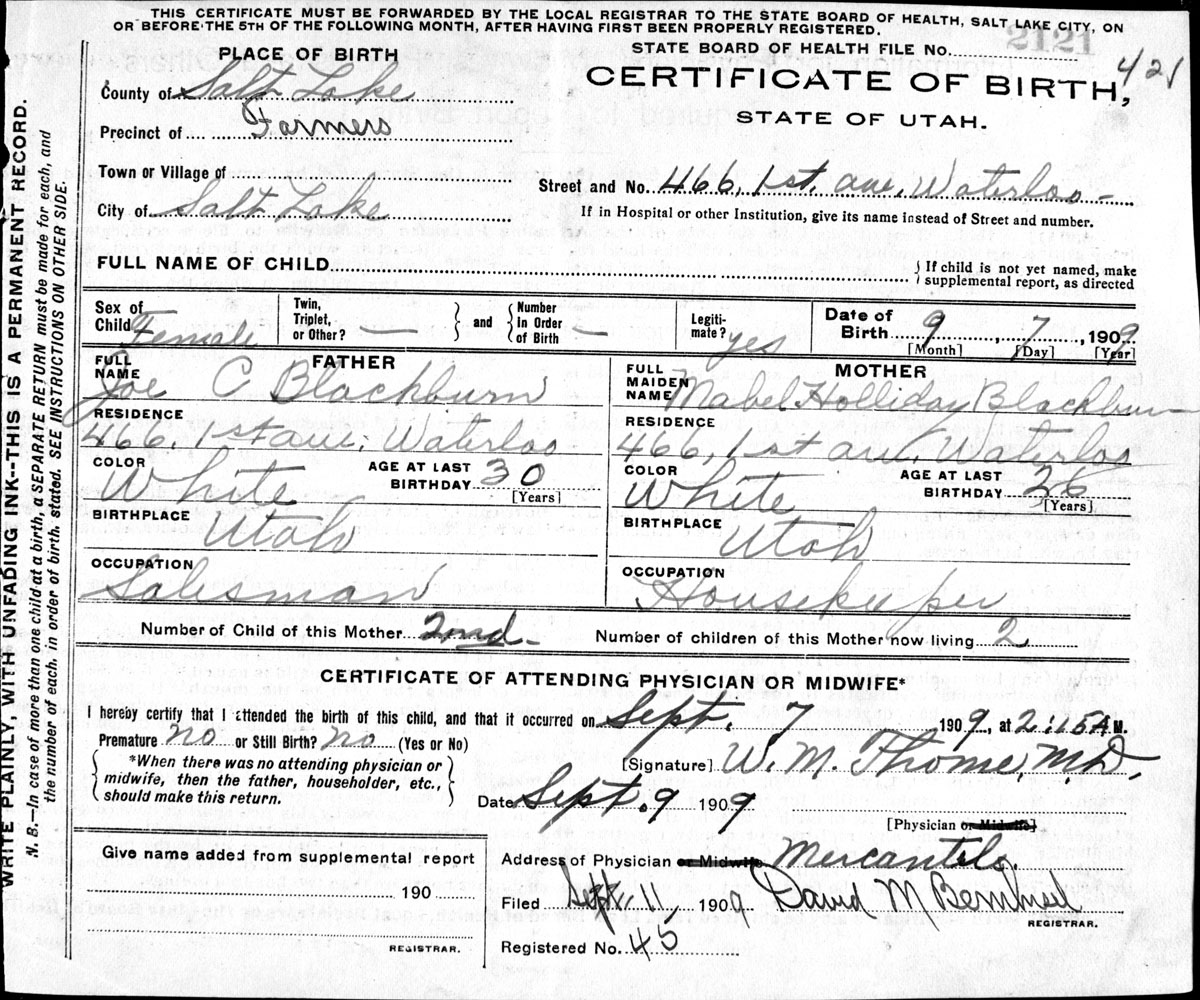 THIS CERTIFICATE MUST BE FORWARDED BY THE LOCAL REGISTRAR TO THE STATE BOARD OF HEALTH, SALT LAKE CITY, ON
OR BEFORE THE 5TH OF THE FOLLOWING MONTH, AFTER HAVING FIRST BEEN PROPERLY REGISTERED.
PLACE OF BIRTH
STATE BOARD OF HEALTH FILE NO.
2121
421
County of Salt Lake
CERTIFICATE OF BIRTH,
Precinct of Farmers
STATE OF UTAH.
Town or Village of
Street and No. 466, 1st. ave, Waterloo-
City of Salt Lake
If in Hospital or other Institution, give its name instead of Street and number.
FULL NAME OF CHILD
If child is not yet named, make
supplemental report, as directed
Sex of Child Female
Twin, Triplet, or Other? —
and
Number In Order of Birth —
Legiti-mate? yes
Date of Birth 9, 7, 1909
[Month] [Day] [Year]
FATHER
FULL NAME Joe C Blackburn
RESIDENCE
466, 1st ave, Waterloo
COLOR White
AGE AT LAST BIRTHDAY 30
[Years]
BIRTHPLACE Utah
OCCUPATION
Salesman
MOTHER
FULL MAIDEN NAME Mabel Holliday Blackburn
RESIDENCE
466, 1st ave, Waterloo
COLOR White
AGE AT LAST BIRTHDAY 26
[Years]
BIRTHPLACE Utah
OCCUPATION
Housekeeper
Number of Child of this Mother 2nd-
Number of children of this Mother now living 2
CERTIFICATE OF ATTENDING PHYSICIAN OR MIDWIFE*
I hereby certify that I attended the birth of this child, and that it occurred on Sept. 7 1909, at 2:15 A M.
Premature no or Still Birth? no (Yes or No)
*When there was no attending physician or
midwife, then the father, householder, etc.,
should make this return.
[Signature] W. M. Thome, M.D.
Date Sept. 9 1909
[Physician or Midwife]
Give name added from supplemental report
190
REGISTRAR.
Address of Physician or Midwife Mercantile.
Filed Sept. 11, 1909 David M
REGISTRAR.
Registered No. 45
WRITE PLAINLY, WITH UNFADING INK--THIS IS A PERMANENT RECORD.
N. B.—In case of more than one child at a birth, a SEPARATE RETURN must be made for each, and
the number of each, in order of birth, stated. SEE INSTRUCTIONS ON OTHER SIDE.